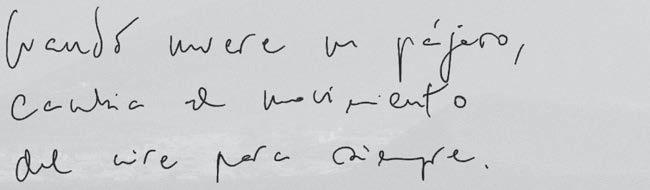 Cuando muere un pájaro,
cambia el movimiento
del aire para siempre.